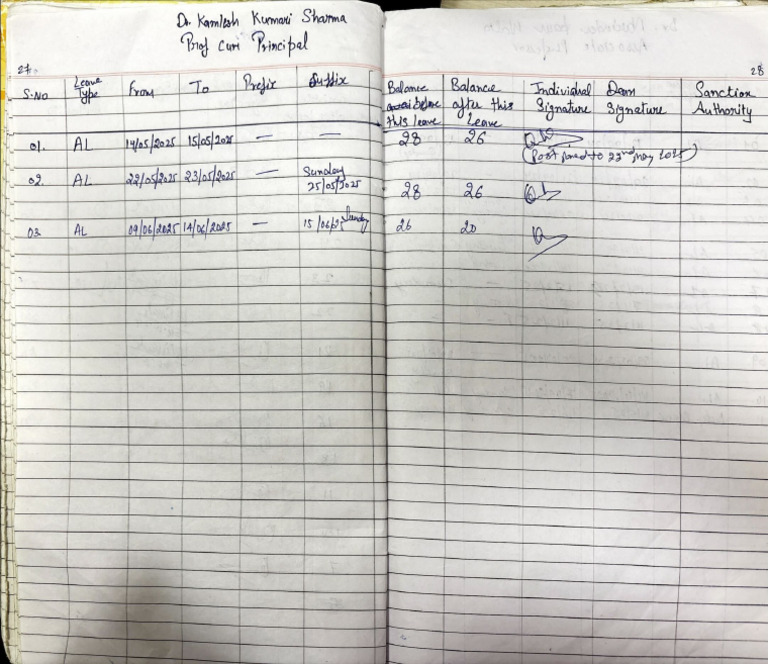 Dr. Kamlesh Kumari Sharma
Prof cum Principal
27. 28
S.No Leave Type From To Prefix Suffix Balance before this leave Balance after this Leave Individual Signature Dean Signature Sanction Authority
01. AL 14/05/2025 15/05/2025 — — 28 26
(Post poned to 22nd may 2025)
02. AL 22/05/2025 23/05/2025 — Sunday 25/05/2025 28 26
03. AL 09/06/2025 14/06/2025 — 15/06/25 Sunday 26 20